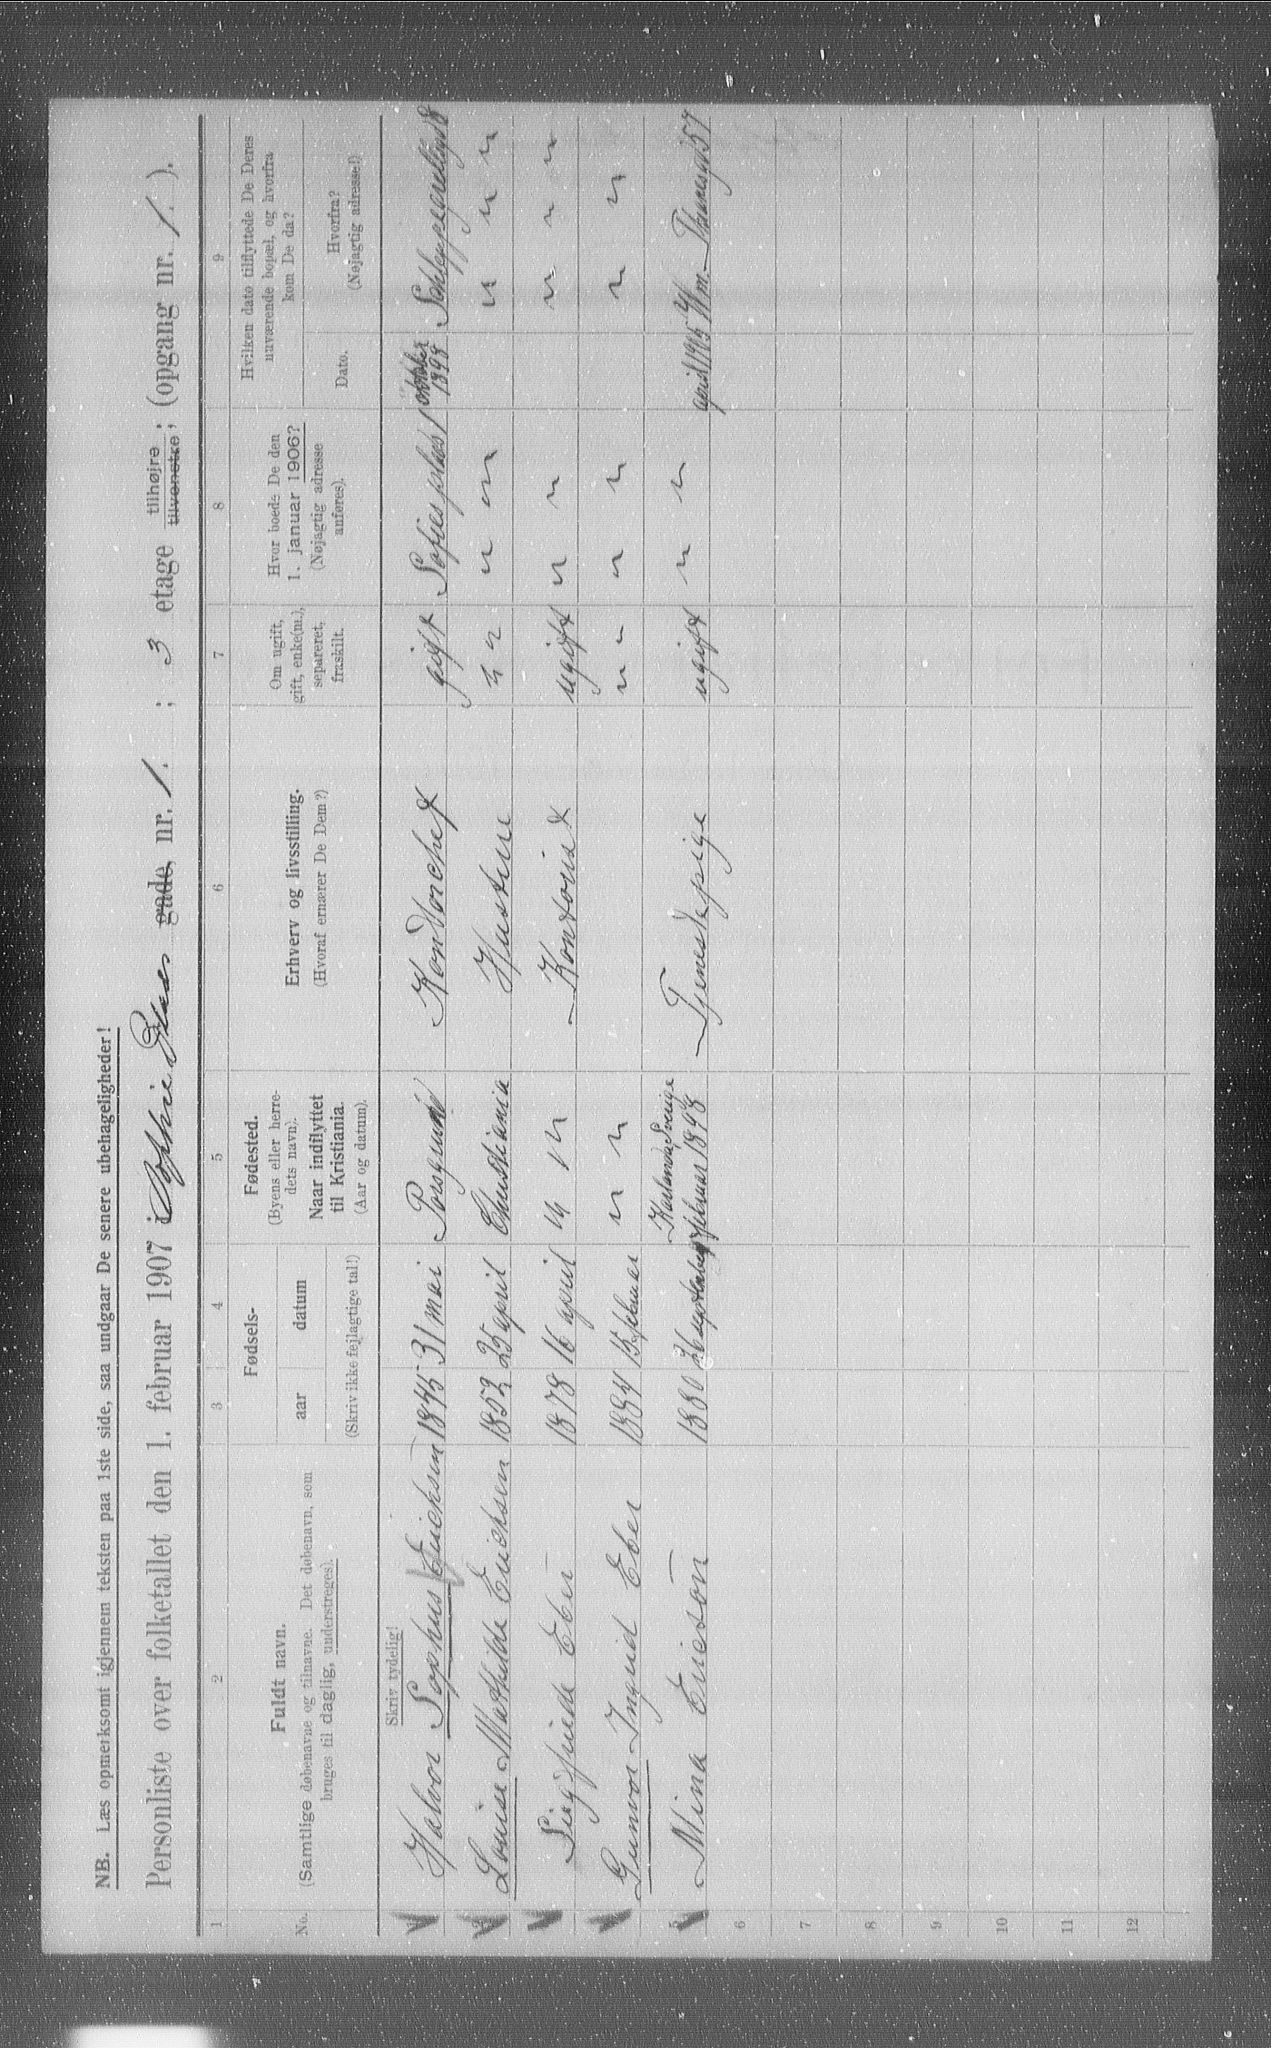 NB. Læs opmerksomt igjennem teksten paa 1ste side, saa undgaar De senere ubehageligheder!
Personliste over folketallet den 1. februar 1907 i Sophie Plads gade, nr. 1. ; 3 etage tilhøjre tilvenstre; (opgang nr. 1. ).
1 2 3 4 5 6 7 8 9
No. Fuldt navn. (Samtlige døbenavne og tilnavne. Det døbenavn, som bruges til daglig, understreges). Fødsels- aar datum (Skriv ikke fejlagtige tal!) Fødested. (Byens eller herredets navn). Naar indflyttet til Kristiania. (Aar og datum). Erhverv og livsstilling. (Hvoraf ernærer De Dem?) Om ugift, gift, enke(m.), separeret, fraskilt. Hvor boede De den 1. januar 1906? (Nøjagtig adresse anføres). Hvilken dato tilflyttede De Deres nuværende bopæl, og hvorfra kom De da? Dato. Hvorfra? (Nøjagtig adresse!)
Skriv tydelig!
Halvor Sophus Erichsen 1845 31 mai Porsgrund Kontorchef gift Sofies plads 1 oktober 1898
2 Louise Mathilde Erichsen 1852 25 april Christiania Hustru " " " " " " "
Sigfriede Eber 1878 16 april " " Kontorist ugift " " " " "
Gunvor Ingrid Eber 1884 15 februar " " " " " " " "
5 Mina Ericson 1880 26 september Sverige februar 1898 Tjenestepige ugift " " april 1905
6
7
8
9
10
11
12